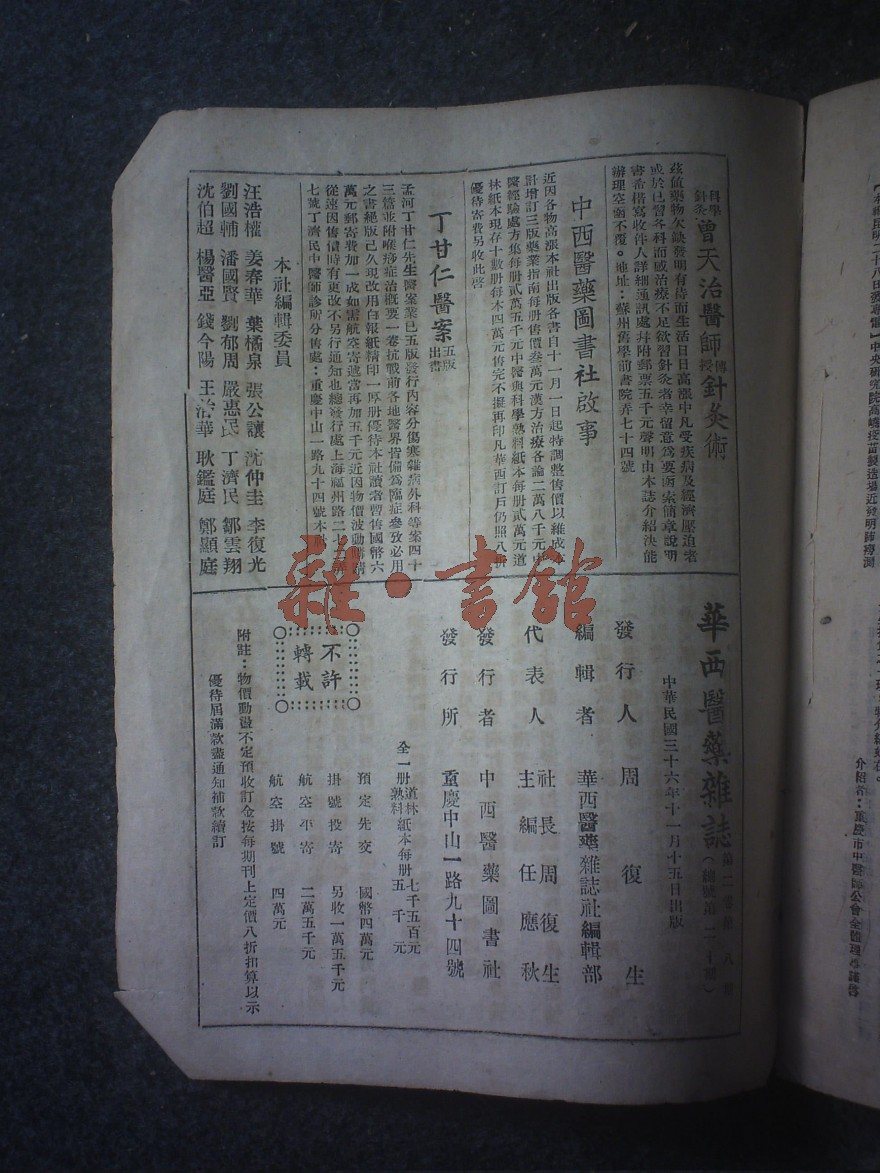 科學針灸 曾天治醫師 傳授 針灸術
茲値藥物欠缺發明有待而生活日日高漲中凡受疾病及經濟壓迫者
或於已習各科而感治療不足欲習針灸者幸留意爲要函索簡章說明
書希楷寫收件人詳細通訊處幷附郵票五千元聲明由本誌介紹決能
辦理空函不覆。地址：蘇州舊學前書院弄七十四號
中西醫藥圖書社啟事
近因各物高漲本社出版各書自十一月一日起特調整售價以維成本
計增訂三版藥業指南每册售價叁萬元漢方治療各論二萬八千元中
醫經驗處方集每册貳萬五千元中醫與科學熟料紙本每册貳萬元道
林紙本現存十數册每本四萬元售完不擬再印凡華西訂戶仍照八折
優待寄費另收此啓
丁甘仁醫案 五版出書
孟河丁甘仁先生醫案業已五版發行内容分傷寒雜病外科等案四十
三篇並附喉痧症治概要一卷抗戰前各地醫界皆備爲臨症參攷必用
之書絕版已久現改用白報紙精印一厚册優待本社讀者暫售國幣六
萬元郵寄費加一成如需航空寄遞當再加五千元近因物價波動購請
從速因售價時有更改不另行通知也總發行處上海福州路二七
七號丁濟民中醫師診所分售處：重慶中山一路九十四號本社
本社編輯委員
汪浩權 姜春華 葉橘泉 張公讓 沈仲圭 李復光
劉國輔 潘國賢 劉郁周 嚴惠民 丁濟民 鄒雲翔
沈伯超 楊醫亞 錢今陽 王治華 耿鑑庭 鄭顯庭
華西醫藥雜誌 第二卷第八期（總號第二十期）
中華民國三十六年十一月十五日出版
發行人 周復生
編輯者 華西醫藥雜誌社編輯部
代表人 社長周復生 主編任應秋
發行者 中西醫藥圖書社
發行所 重慶中山一路九十四號
全一册 道林紙本每册七千五百元 熟料紙本每册五千元
預定先交 國幣四萬元
掛號投寄 另收一萬五千元
航空平寄 二萬五千元
航空掛號 四萬元
不許轉載
附註：物價動盪不定預收訂金按每期刊上定價八折扣算以示
優待屆滿款盡通知補款續訂
雜·書館
介紹者：重慶市中醫師公會全體理